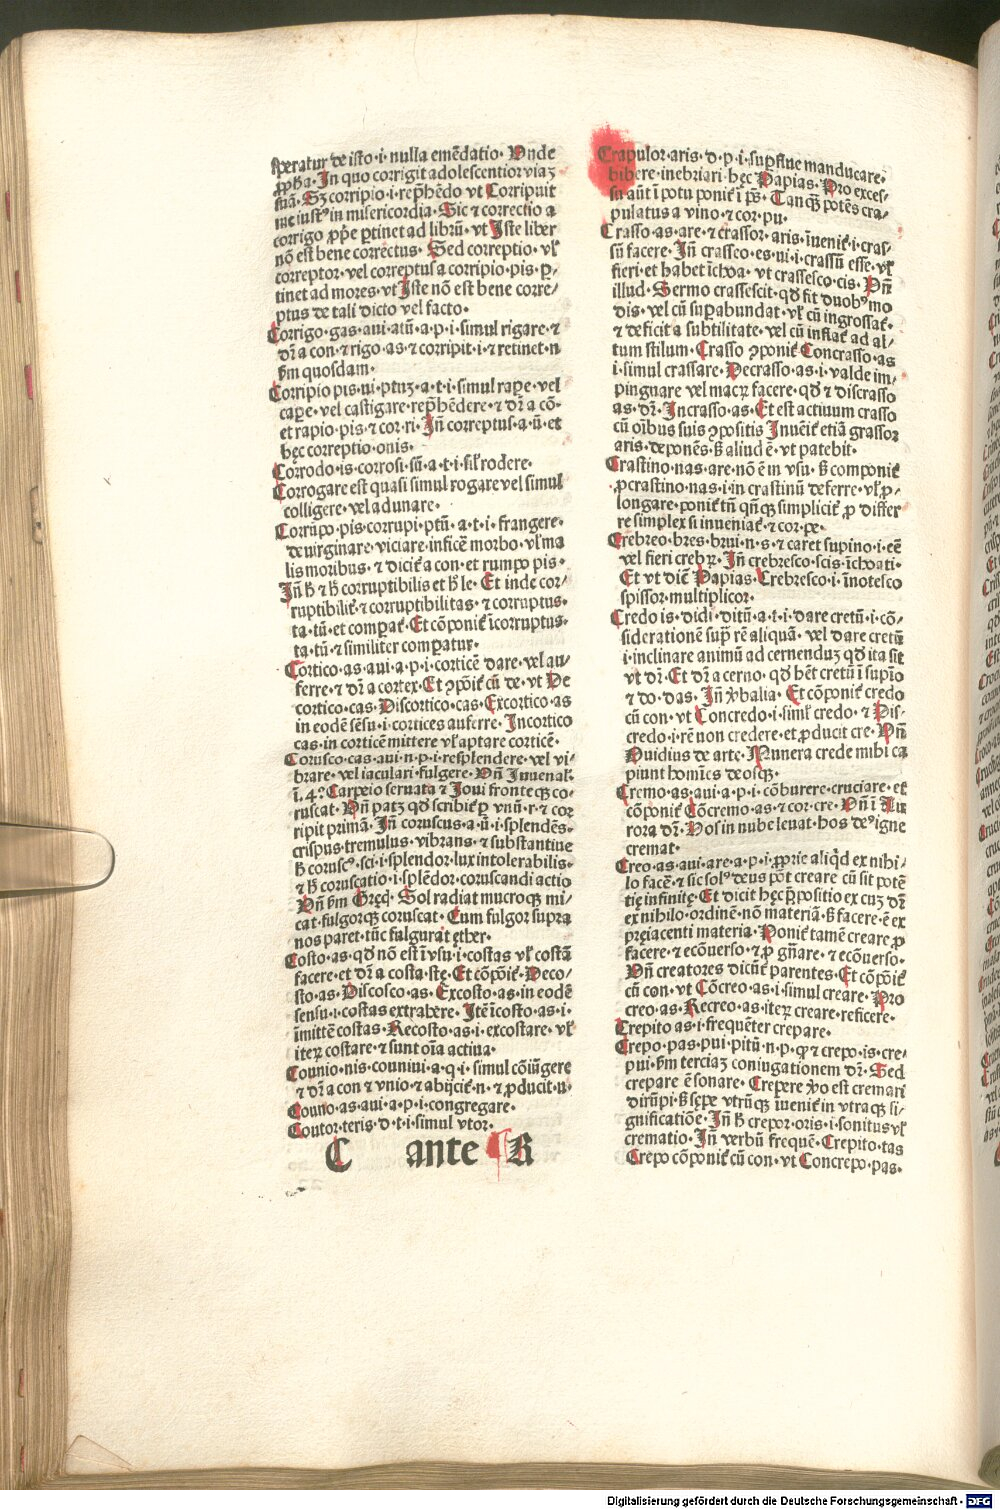 speratur de isto·i·nulla emēdatio· Vnde
ꝓpħa· In quo corrigit adolescentior viaꝫ
suā· Sꝫ corripio·i·rep̄hēdo vt Corripuit
me iustꝰ in misericordia· Sic ⁊ correctio a
corrigo ꝓpe ꝑtinet ad librū· vt Iste liber
nō est bene correctus· Sed correptio· vl̄
correptor· vel correptus a corripio·pis·ꝑ-
tinet ad mores· vt Iste nō est bene corre-
ptus de tali dicto vel facto·
Corrigo·gas·aui·atū·a·p·i·simul rigare·⁊
dr̄ a con·⁊ rigo·as·⁊ corripit·i·⁊ retinet·n
ẜm quosdam·
Corripio pis·ui·ptuꝫ·a·t·i·simul raꝑe·vel
caꝑe·vel castigare·rep̄hēdere·⁊ dr̄ a cō-
et rapio·pis·⁊ cor·ri· Iñ correptus·a·ū·et
hęc correptio·onis·
Corrodo·is·corrosi·sū·a·t·i·sil̄ rodere·
Corrogare est quasi simul rogare vel simul
colligere·vel adunare·
Corrūpo·pis·corrupi·ptū·a·t·i·frangere·
deuirginare·viciare·inficē morbo·vl̄ ma
lis moribus·⁊ dicit̄ a con·et rumpo pis·
Iñ ħ ⁊ ħ corruptibilis et ħ le· Et inde cor-
ruptibilit̄·⁊ corruptibilitas·⁊ corruptus·
ta·tū·et comꝑat̄· Et cōponit̄ īcorruptus·
ta·tū·⁊ similiter comꝑatur·
Cortico·as·aui·a·p·i·corticē dare·vel au-
ferre·⁊ dr̄ a cortex· Et ꝯpōit̄ cū de·vt De
cortico·cas· Discortico·cas· Excortico·as
in eodē sēsu·i·cortices auferre· Incortico
cas·in corticē mittere vl̄ aptare corticē·
Corusco·cas·aui·n·p·i·resplendere·vel vi-
brare·vel iaculari·fulgere· Vñ Iuuenal·
ī·4·? Carpeio seruata ⁊ Ioui fronteqꝫ co-
ruscat· Vñ patꝫ qđ scribit̄ ꝑ vnū·r·⁊ cor
ripit primā· Iñ coruscus·a·ū·i·splendēs·
crispus·tremulus·vibrans·⁊ substantiue
ħ coruscꝰ·sci·i·splendor·lux intolerabilis·
⁊ ħ coruscatio·i·splēdor·coruscandi actio
Vñ ẜm Gręcꝫ· Sol radiat mucroqꝫ mi-
cat·fulgorqꝫ coruscat· Cum fulgor supra
nos paret·tūc fulgurat ęther·
Costo·as·qđ nō est ī vsu·i·costas vl̄ costā
facere·et dr̄ a costa·stę· Et cōpōit̄· Deco-
sto·as· Discosco·as· Excosto·as·in eodē
sensu·i·costas extrahere· Itē īcosto·as·i·
īmittē costas· Recosto·as·i·excostare·vl̄
iteꝝ costare·⁊ sunt oīa actiua·
Counio·nis·couniui·a·q·i·simul cōiūgere
⁊ dr̄ a con ⁊ vnio·⁊ abijcit̄·n·⁊ ꝓducit·u·
Couno·as·aui·a·p·i·congregare·
Coutor·teris·d·t·i·simul vtor·
C ante R
Crapulor·aris·d·p·i·suꝑflue manducare·
bibere·inebriari·hęc Papias· Pro exces-
su aūt ī potu ponit̄ ī ps̄· Tanqꝫ potēs cra-
pulatus a vino·⁊ cor·pu·
Crasso·as·are·⁊ crassor·aris·īuenit̄·i·cras-
sū facere· Iñ crasseo·es·ui·i·crassū esse·vl̄
fieri·et habet īchoa·vt crassesco·cis· Vñ
illud· Sermo crassescit·qđ fit duobꝰ mo
dis·vel cū suꝑabundat·vl̄ cū ingrossat̄·
⁊ deficit a subtilitate·vel cū inflat̄ ad al-
tum stilum· Crasso ꝯponit̄ Concrasso·as
i·simul crassare· Decrasso·as·i·valde im-
pinguare vel macꝝ facere·qđ ⁊ discrasso
as·dr̄· Incrasso·as· Et est actiuum crasso
cū oībus suis ꝯpositis Inuēit̄ etiā grassor
aris·deponēs·ẜ aliud ē·vt patebit·
Crastino·nas·are·nō ē in vsu·ẜ componit̄
ꝓcrastino·nas·i·in crastinū deferre·vl̄ ꝓ-
longare·ponit̄ tñ qñqꝫ simplicit̄ ꝓ differ
re simplex si inueniat̄·⁊ cor·pe·
Crebreo·bres·brui·n·s·⁊ caret supino·i·eē
vel fieri crebꝝ· Iñ crebresco·scis·īchoati·
Et vt diē Papias· Crebresco·i·īnotesco
spissor·multiplicor·
Credo·is·didi·ditū·a·t·i·dare cretū·i·cō-
siderationē suꝑ rē aliquā·vel dare cretū
i·inclinare animū ad cernenduꝫ qđ ita sit
vt dr̄· Et dr̄ a cerno·qđ hēt cretū ī supīo
⁊ do·das· Iñ ꝟbalia· Et cōponit̄ credo
cū con·vt Concredo·i·siml̄ credo·⁊ Dis-
credo·i·rē non credere·et ꝓducit cre· Vñ
Ouidius de arte· Munera crede mihi ca
piunt homīes deosqꝫ·
Cremo·as·aui·a·p·i·cōburere·cruciare·et
cōponit̄ Cōcremo·as·⁊ cor·cre· Vñ ī Au
rora dr̄· Vos in nube leuat·hos deꝰ igne
cremat·
Creo·as·aui·are·a·p·i·ꝓprie aliqđ ex nihi-
lo facē·⁊ sic solꝰ deus pōt creare cū sit potē
tię infinitę· Et dicit hęc p̄positio ex cuꝫ dr̄
ex nihilo·ordinē·nō materiā·ẜ facere ē ex
pręiacenti materia· Ponit̄ tamē creare ꝓ
facere·⁊ ecōuerso·⁊ ꝓ gñare·⁊ ecōuerso·
Vñ creatores dicūt̄ parentes· Et cōpōit̄
cū con·vt Cōcreo·as·i·simul creare· Pro
creo·as· Recreo·as·iteꝝ creare·reficere·
Crepito as·i·frequēter crepare·
Crepo·pas·pui·pitū·n·p·qꝫ ⁊ crepo·is·cre-
pui·ẜm terciaꝫ coniugationem dr̄· Sed
crepare ē sonare· Crepere ꝟo est cremari
dirūpi·ẜ sępe vtrūqꝫ iuenit̄ in vtraqꝫ si-
gnificatiōe· Iñ ħ crepor·oris·i·sonitus vl̄
crematio· Iñ verbū frequē· Crepito·tas
Crepo cōponit̄ cū con·vt Concrepo·pas·
Digitalisierung gefördert durch die Deutsche Forschungsgemeinschaft - DFG